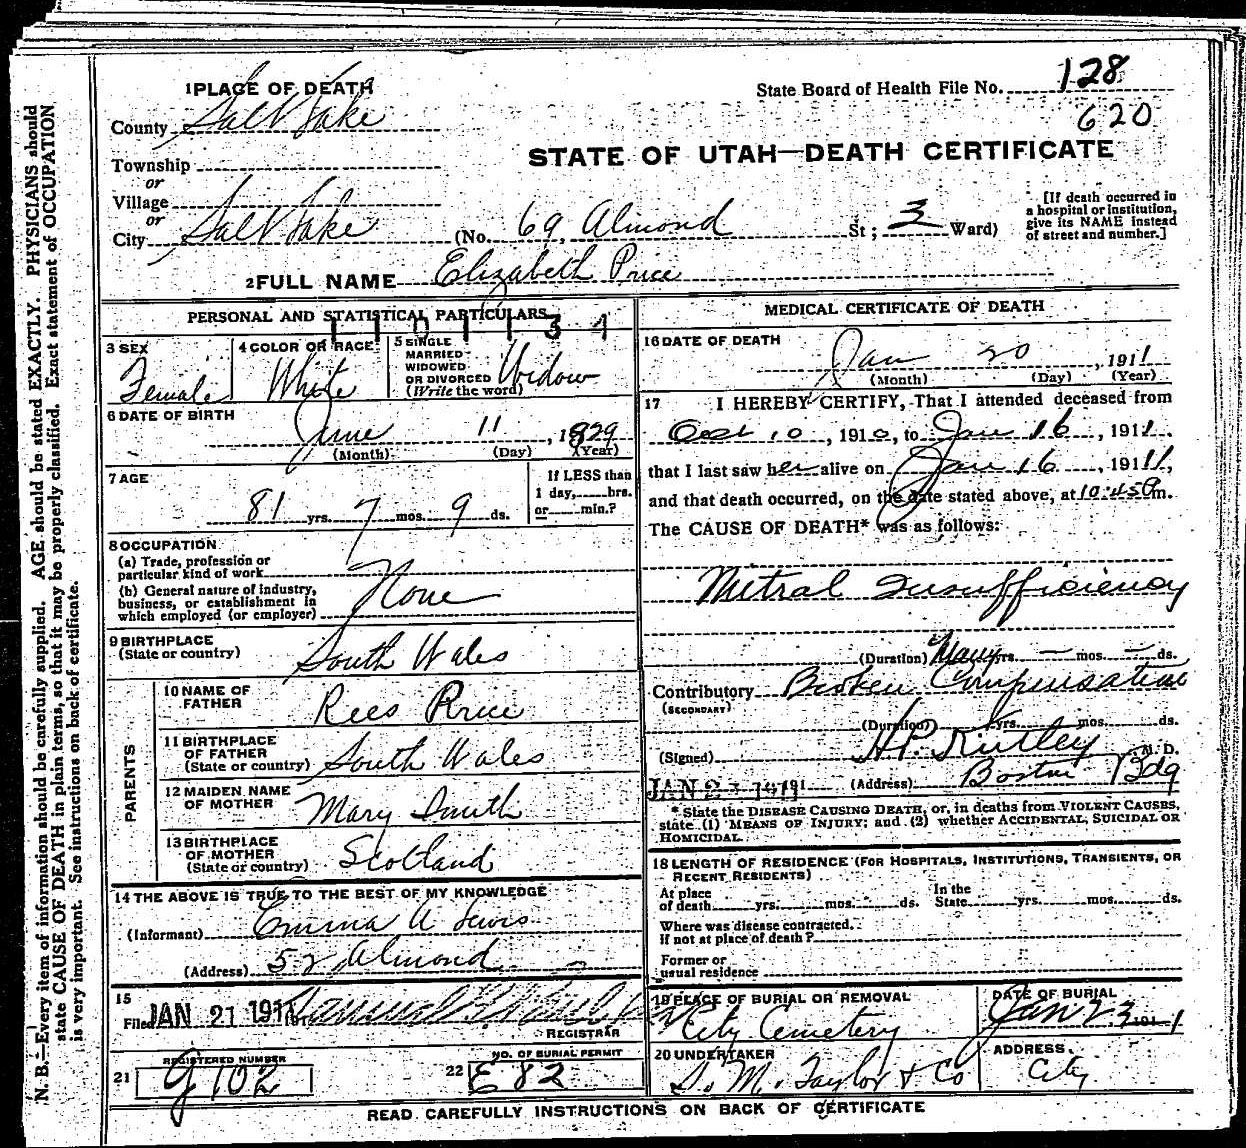 128
State Board of Health File No.
620
1 PLACE OF DEATH
County Salt Lake
STATE OF UTAH—DEATH CERTIFICATE
Township
or
Village
or
City Salt Lake (No. 69, Almond St; 3 Ward)
[If death occurred in
a hospital or institution,
give its NAME instead
of street and number.]
2 FULL NAME Elizabeth Price
PERSONAL AND STATISTICAL PARTICULARS
3 SEX Female
4 COLOR OR RACE White
5 SINGLE
MARRIED
WIDOWED
OR DIVORCED
(Write the word) Widow
6 DATE OF BIRTH
June 11, 1829
(Month) (Day) (Year)
7 AGE
81 yrs. 7 mos. 9 ds.
If LESS than
1 day, hrs.
or min.?
8 OCCUPATION
(a) Trade, profession or
particular kind of work
(b) General nature of industry,
business, or establishment in
which employed (or employer)
None
9 BIRTHPLACE
(State or country) South Wales
PARENTS
10 NAME OF
FATHER Rees Price
11 BIRTHPLACE
OF FATHER
(State or country) South Wales
12 MAIDEN NAME
OF MOTHER Mary Smith
13 BIRTHPLACE
OF MOTHER
(State or country) Scotland
14 THE ABOVE IS TRUE TO THE BEST OF MY KNOWLEDGE
(Informant) Emma A Lewis
(Address) 52 Almond
15
Filed JAN 21 1911
REGISTRAR
REGISTERED NUMBER
21 102
NO. OF BURIAL PERMIT
22 E 82
MEDICAL CERTIFICATE OF DEATH
16 DATE OF DEATH
Jan 20, 1911
(Month) (Day) (Year)
17 I HEREBY CERTIFY, That I attended deceased from
Oct 10, 1910, to Jan 16, 1911.
that I last saw her alive on Jan 16, 1911,
and that death occurred, on the date stated above, at 10:45 Pm.
The CAUSE OF DEATH* was as follows:
Mitral Insufficiency
(Duration) Many yrs. — mos. — ds.
Contributory Broken Compensation
(SECONDARY)
(Duration) yrs. mos. ds.
(Signed) M. D.
JAN 23 1911 191 (Address) Boston Bdg
* State the DISEASE CAUSING DEATH, or, in deaths from VIOLENT CAUSES,
state (1) MEANS OF INJURY; and (2) whether ACCIDENTAL, SUICIDAL OR
HOMICIDAL.
18 LENGTH OF RESIDENCE (FOR HOSPITALS, INSTITUTIONS, TRANSIENTS, OR
RECENT RESIDENTS)
At place
of death yrs. mos. ds.
In the
State yrs. mos. ds.
Where was disease contracted,
if not at place of death?
Former or
usual residence
19 PLACE OF BURIAL OR REMOVAL
City Cemetery
DATE OF BURIAL
Jan 23 1911
20 UNDERTAKER
S. M. Taylor & Co
ADDRESS
City
READ CAREFULLY INSTRUCTIONS ON BACK OF CERTIFICATE
N. B.—Every item of information should be carefully supplied. AGE should be stated EXACTLY. PHYSICIANS should
state CAUSE OF DEATH in plain terms, so that it may be properly classified. Exact statement of OCCUPATION
is very important. See instructions on back of certificate.